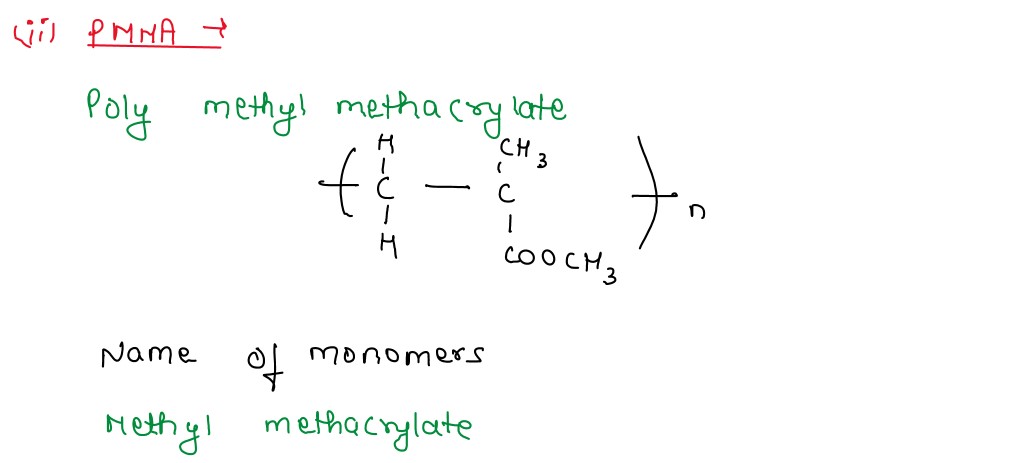 (ii) PMMA →
Poly methyl methacrylate
H CH3
C — C
H COOCH3
n
Name of monomers
Methyl methacrylate